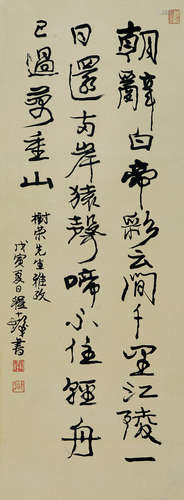 朝辭白帝彩云間千里江陵一
日還兩岸猿聲啼不住輕舟
已過萬重山
樹榮先生雅政
戊寅夏日